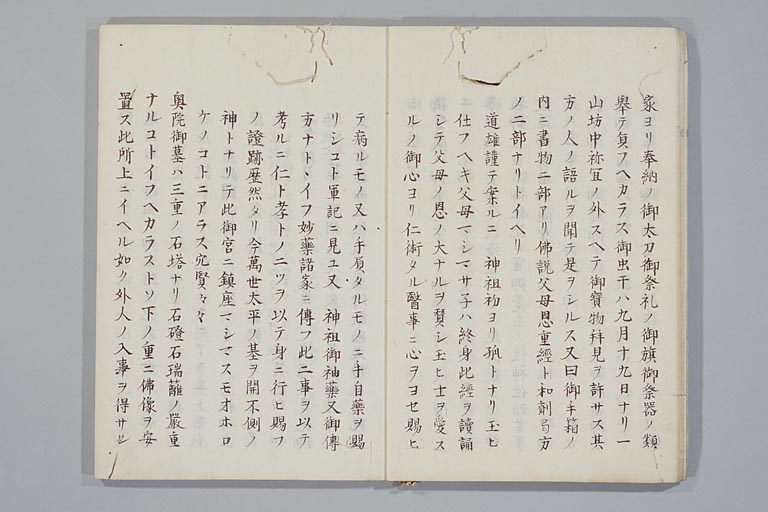 家ヨリ奉納ノ御太刀御祭礼ノ御旗御祭器ノ類
擧テ負フヘカラス御虫干ハ九月十九日ナリ一
山坊中祢宜ノ外スヘテ御寳物拜見ヲ許サス其
方ノ人ノ語ルヲ聞テ是ヲシルス又曰御手箱ノ
内ニ書物二部アリ佛説父母恩重經ト和劑局方
ノ二部ナリトイヘリ
道雄謹テ案ルニ 神祖初ヨリ孤トナリ玉ヒ
ニ仕フヘキ父母マシマサ子ハ終身此經ヲ讀誦
シテ父母ノ恩ノ大ナルヲ賛シ玉ヒ士ヲ愛ス
ルノ御心ヨリ仁術タル醫事ニ心ヲヨセ賜ヒ
テ病ルモノ又ハ手負タルモノニ手自藥ヲ賜
リシコト軍記ニ見ユ又 神祖御袖藥又御傳
方ナトヽイフ妙藥諸家ニ傳フ此二事ヲ以テ
考ルニ仁ト孝トノ二ツヲ以テ身ニ行ヒ賜フ
ノ證跡歴然タリ今萬世太平ノ基ヲ開不側ノ
神トナリテ此御宮ニ鎮座マシマスモオホロ
ケノコトニアラス穴賢々々
奥院御墓ハ三重ノ石塔ナリ石磴石瑞籬ノ嚴重
ナルコトイフヘカラストソ下ノ重ニ佛像ヲ安
置ス此所上ニイヘル如ク外人ノ入事ヲ得サレ